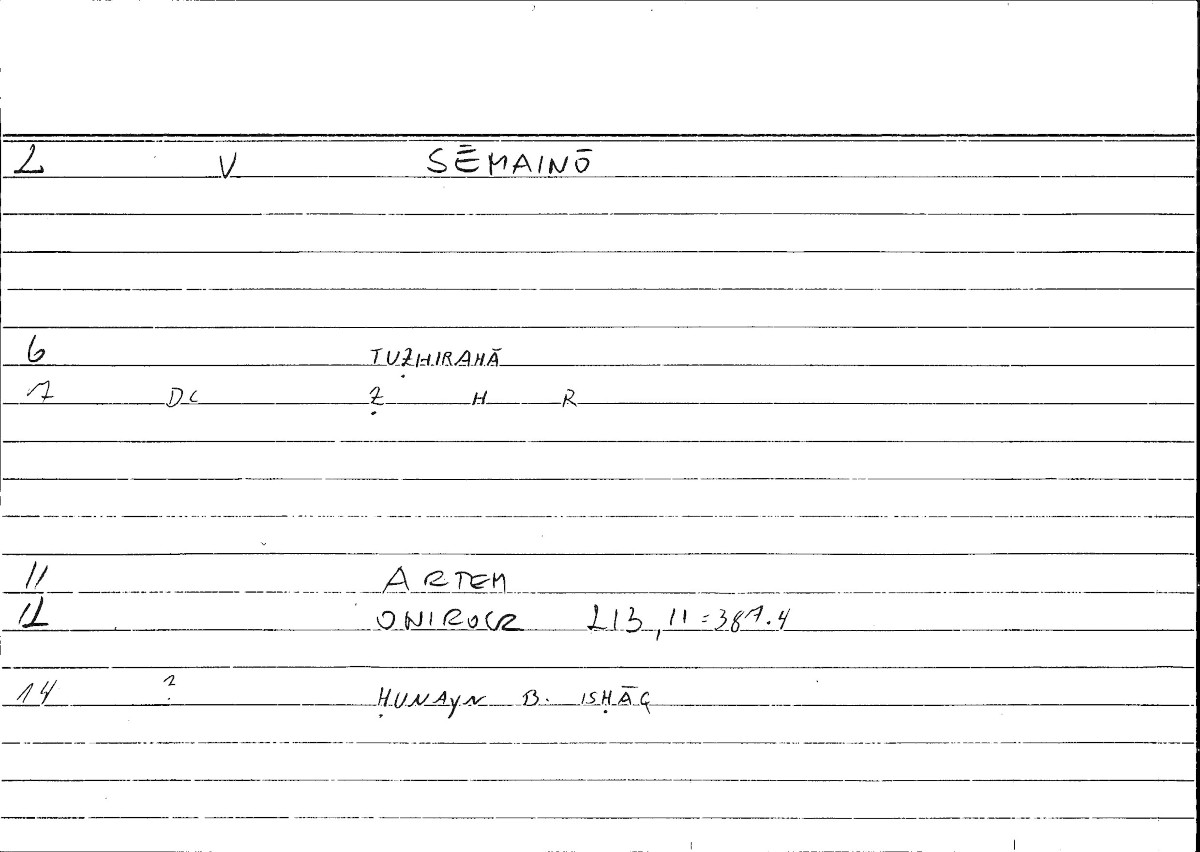 2 V SĒMAINŌ
6 TUẒHIRAHĀ
7 DC Ẓ H R
11 ARTEM
12 ONIROCR 213,11=387.4
14 ? ḤUNAYN B. ISḤĀQ